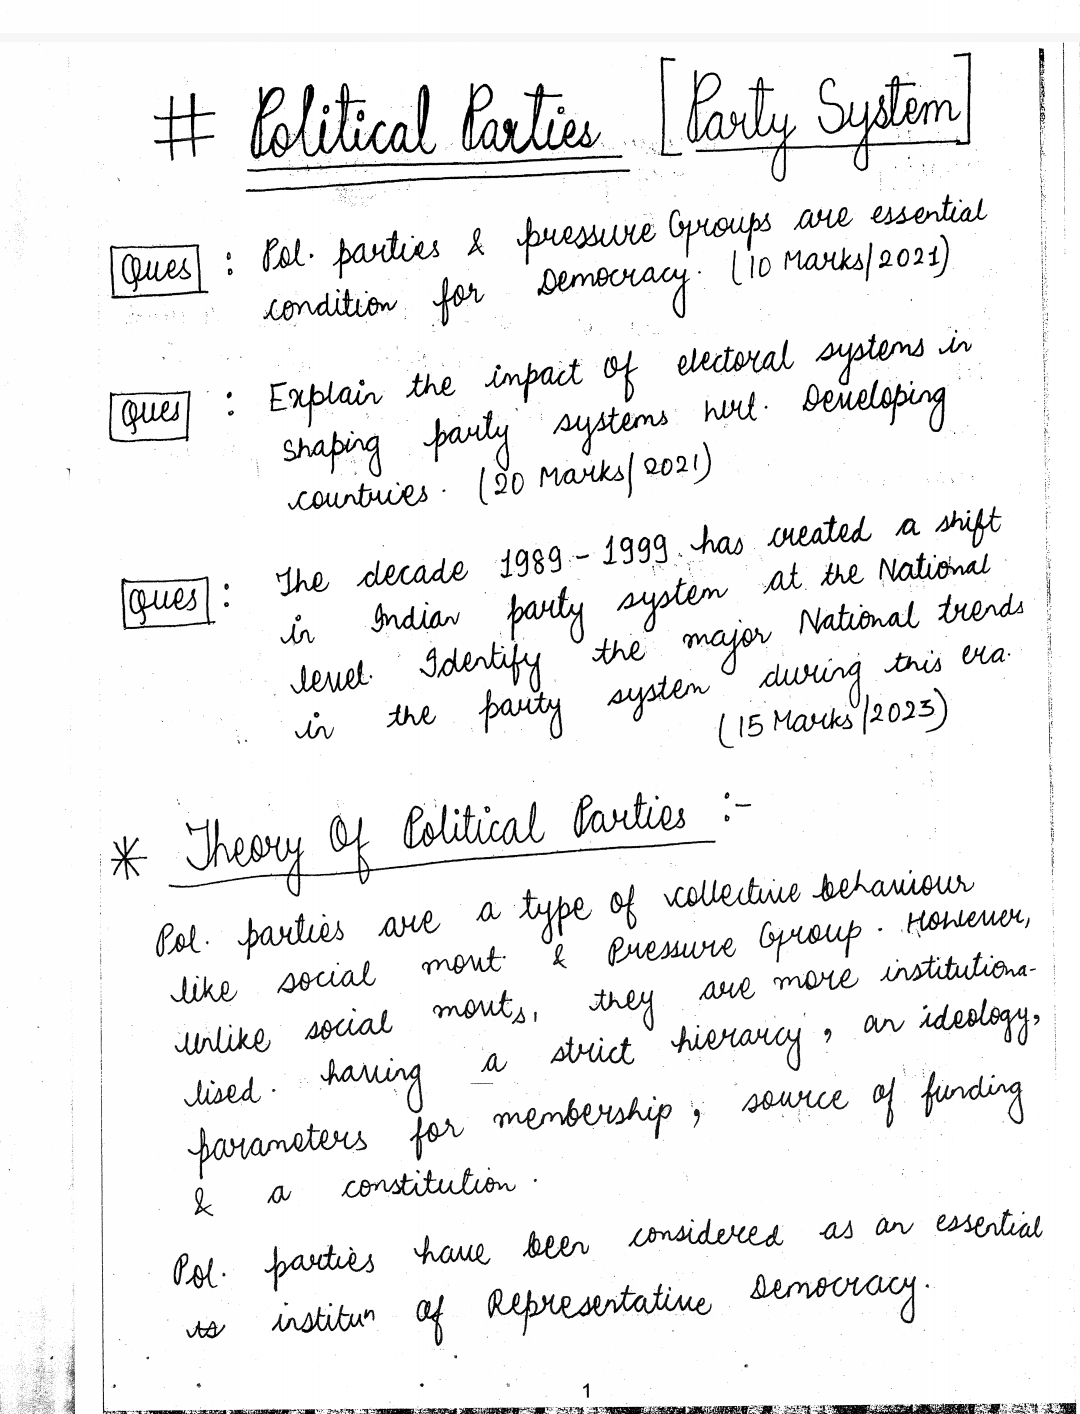 # Political Parties [Party System]
Ques : Pol. parties & pressure Groups are essential
condition for Democracy. (10 Marks/2021)
Ques : Explain the impact of electoral systems in
shaping party systems wrt. Developing
countries. (20 Marks/2021)
Ques : The decade 1989-1999 has created a shift
in Indian party system at the National
level. Identify the major National trends
in the party system during this era.
(15 Marks/2023)
* Theory Of Political Parties :-
Pol. parties are a type of collective behaviour
like social movt. & Pressure Group. However,
unlike social movts, they are more institutiona-
lised. having a strict hierarcy, an ideology,
parameters for membership, source of funding
& a constitution.
Pol. parties have been considered as an essential
institun of Representative Democracy.
1